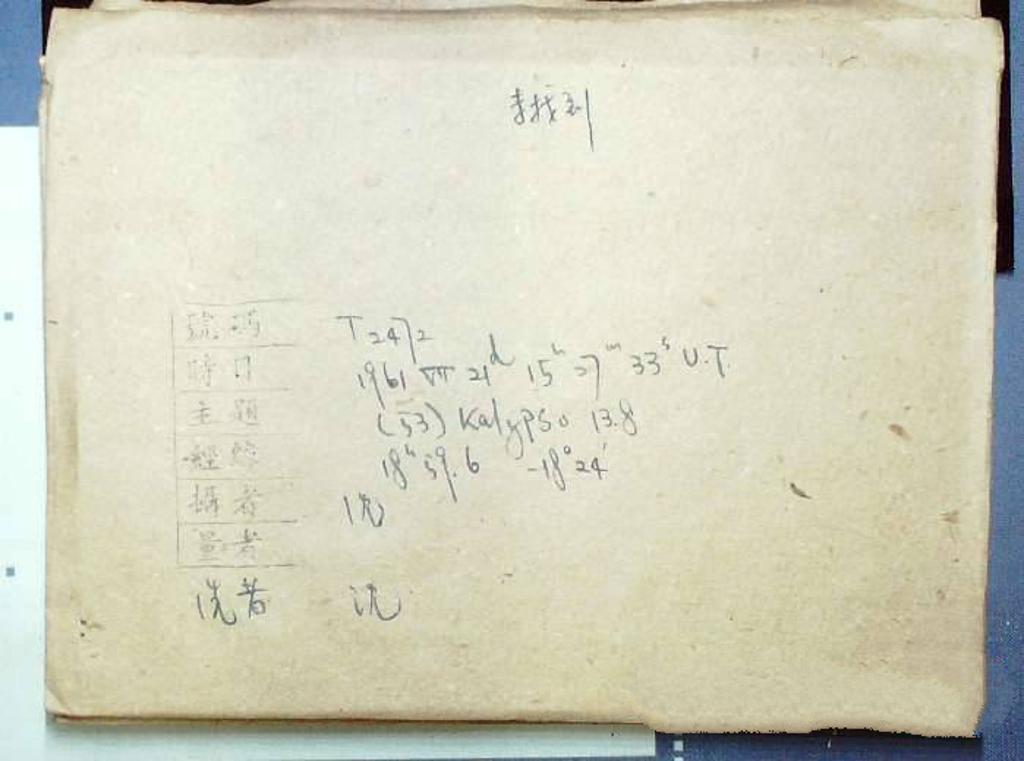 未找到
號碼 T2472
時日 1961 VII 21ᵈ 15ʰ 27ᵐ 33ˢ U.T.
主題 (53) Kalypso 13.8
經緯 18ʰ59.6 -18°24'
攝者 沈
量者
洗者 沈